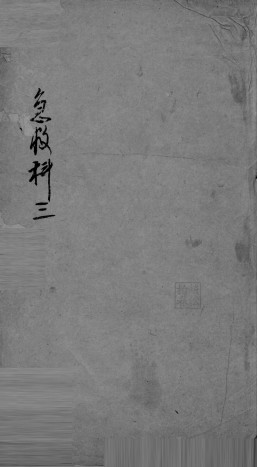 急救科三